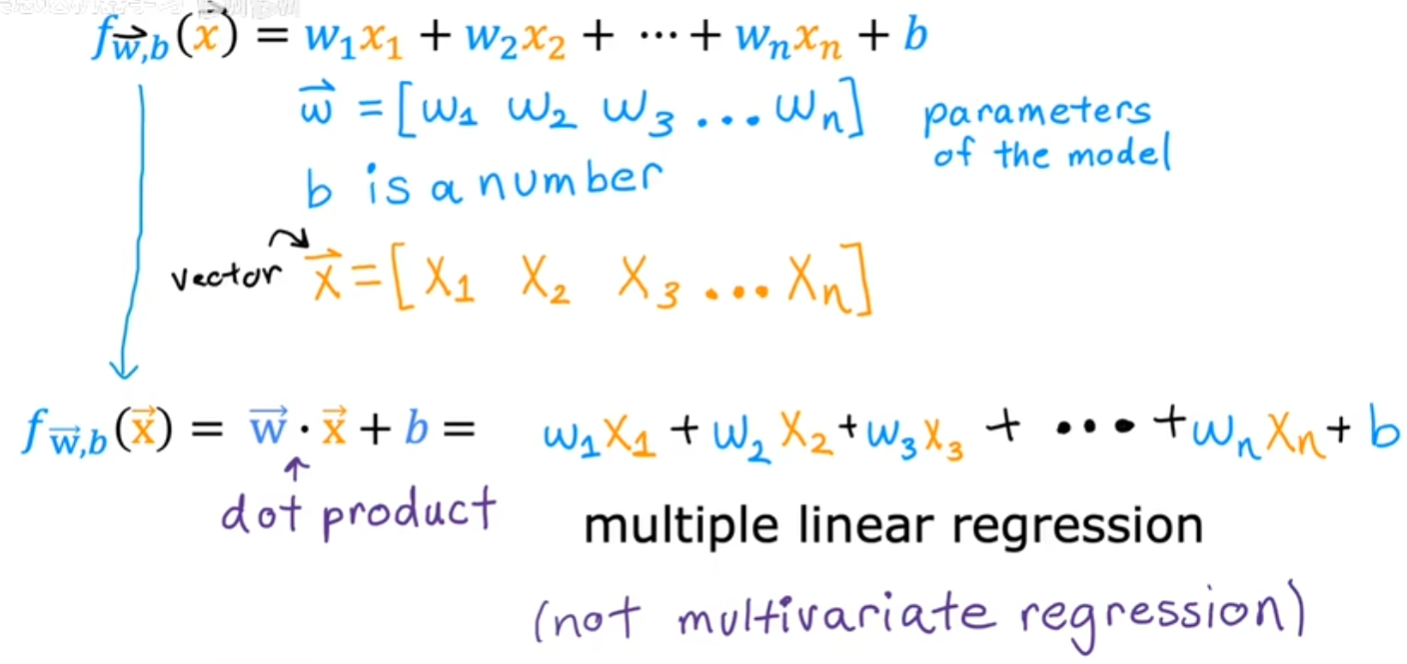 f w⃗,b (x⃗) = w₁x₁ + w₂x₂ + ⋯ + wₙxₙ + b
w⃗ = [w₁ w₂ w₃ ... wₙ] parameters
of the model
b is a number
vector x⃗ = [x₁ x₂ x₃ ... xₙ]
f w⃗,b (x⃗) = w⃗ · x⃗ + b = w₁x₁ + w₂x₂ + w₃x₃ + ⋯ + wₙxₙ + b
dot product
multiple linear regression
(not multivariate regression)